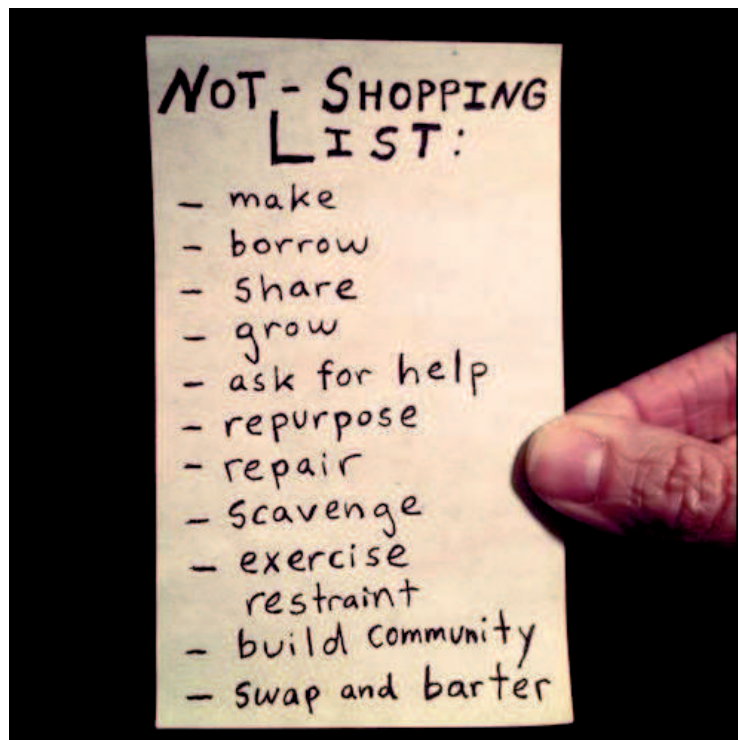 NOT - SHOPPING
LIST:
- make
- borrow
- share
- grow
- ask for help
- repurpose
- repair
- scavenge
- exercise
restraint
- build community
- swap and barter